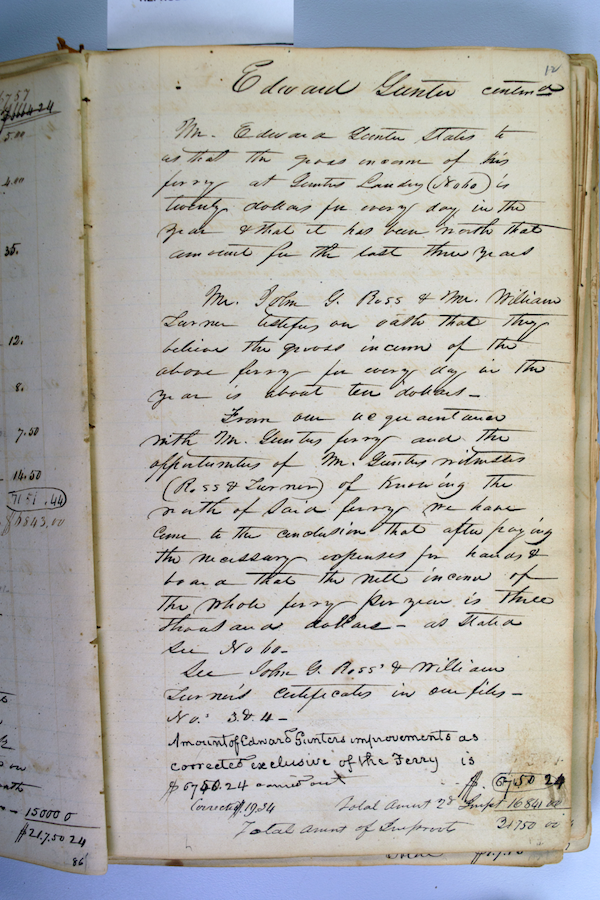 757
424
5.00
4.00
35.
12.
8.
7.50
14.50
7151.44
$4843.00
15000 0
$21.750 24
86
12
Edward Gunter contind
Mr. Edward Gunter States to
us that the gross income of his
ferry at Gunters Landing (No 60) is
twenty dollars for every day in the
year & that it has been worth that
amount for the last three years
Mr. John G. Ross & Mr. William
Turner testifies on oath that they
believe the gross income of the
above ferry for every day in the
year is about ten dollars —
From our acquaintance
with Mr. Gunters ferry and the
opportunities of Mr. Gunters witnesses
(Ross & Turner) of Knowing the
worth of Said ferry we have
Come to the conclusion that after paying
the necessary expenses for hands &
board that the nett income of
the whole ferry per year is three
thousand dollars — as stated
See No 60 —
See John G. Ross' & William
Turner's Certificates in our files —
No. 3 & 4 —
Amount of Edward Gunters improvements as
corrected exclusive of the Ferry is
$6750.24 carried out $ 6750 24
Total Amnt
Total Amnt of Improvts 21750 00